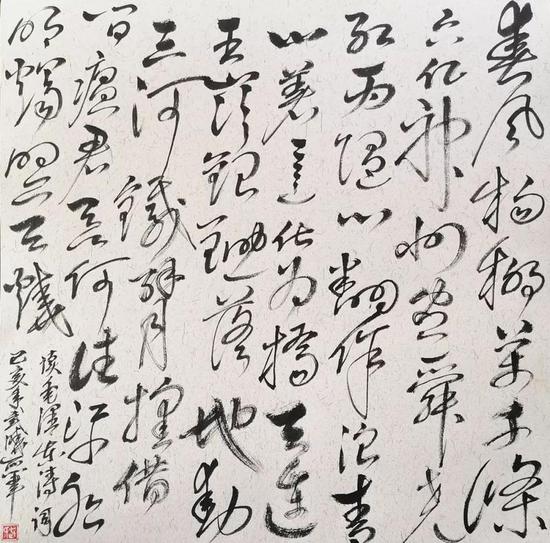 春风杨柳万千條
六亿神州尽舜尧
红雨随心翻作浪青
山着意化为橋天连
五嶺銀鋤落地動
三河鐵臂摇借
问瘟君欲何往纸船
明燭照天燒
毛泽东诗词
己亥年